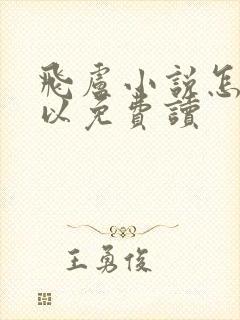 飛盧小說怎
以免費讀
王勇俊